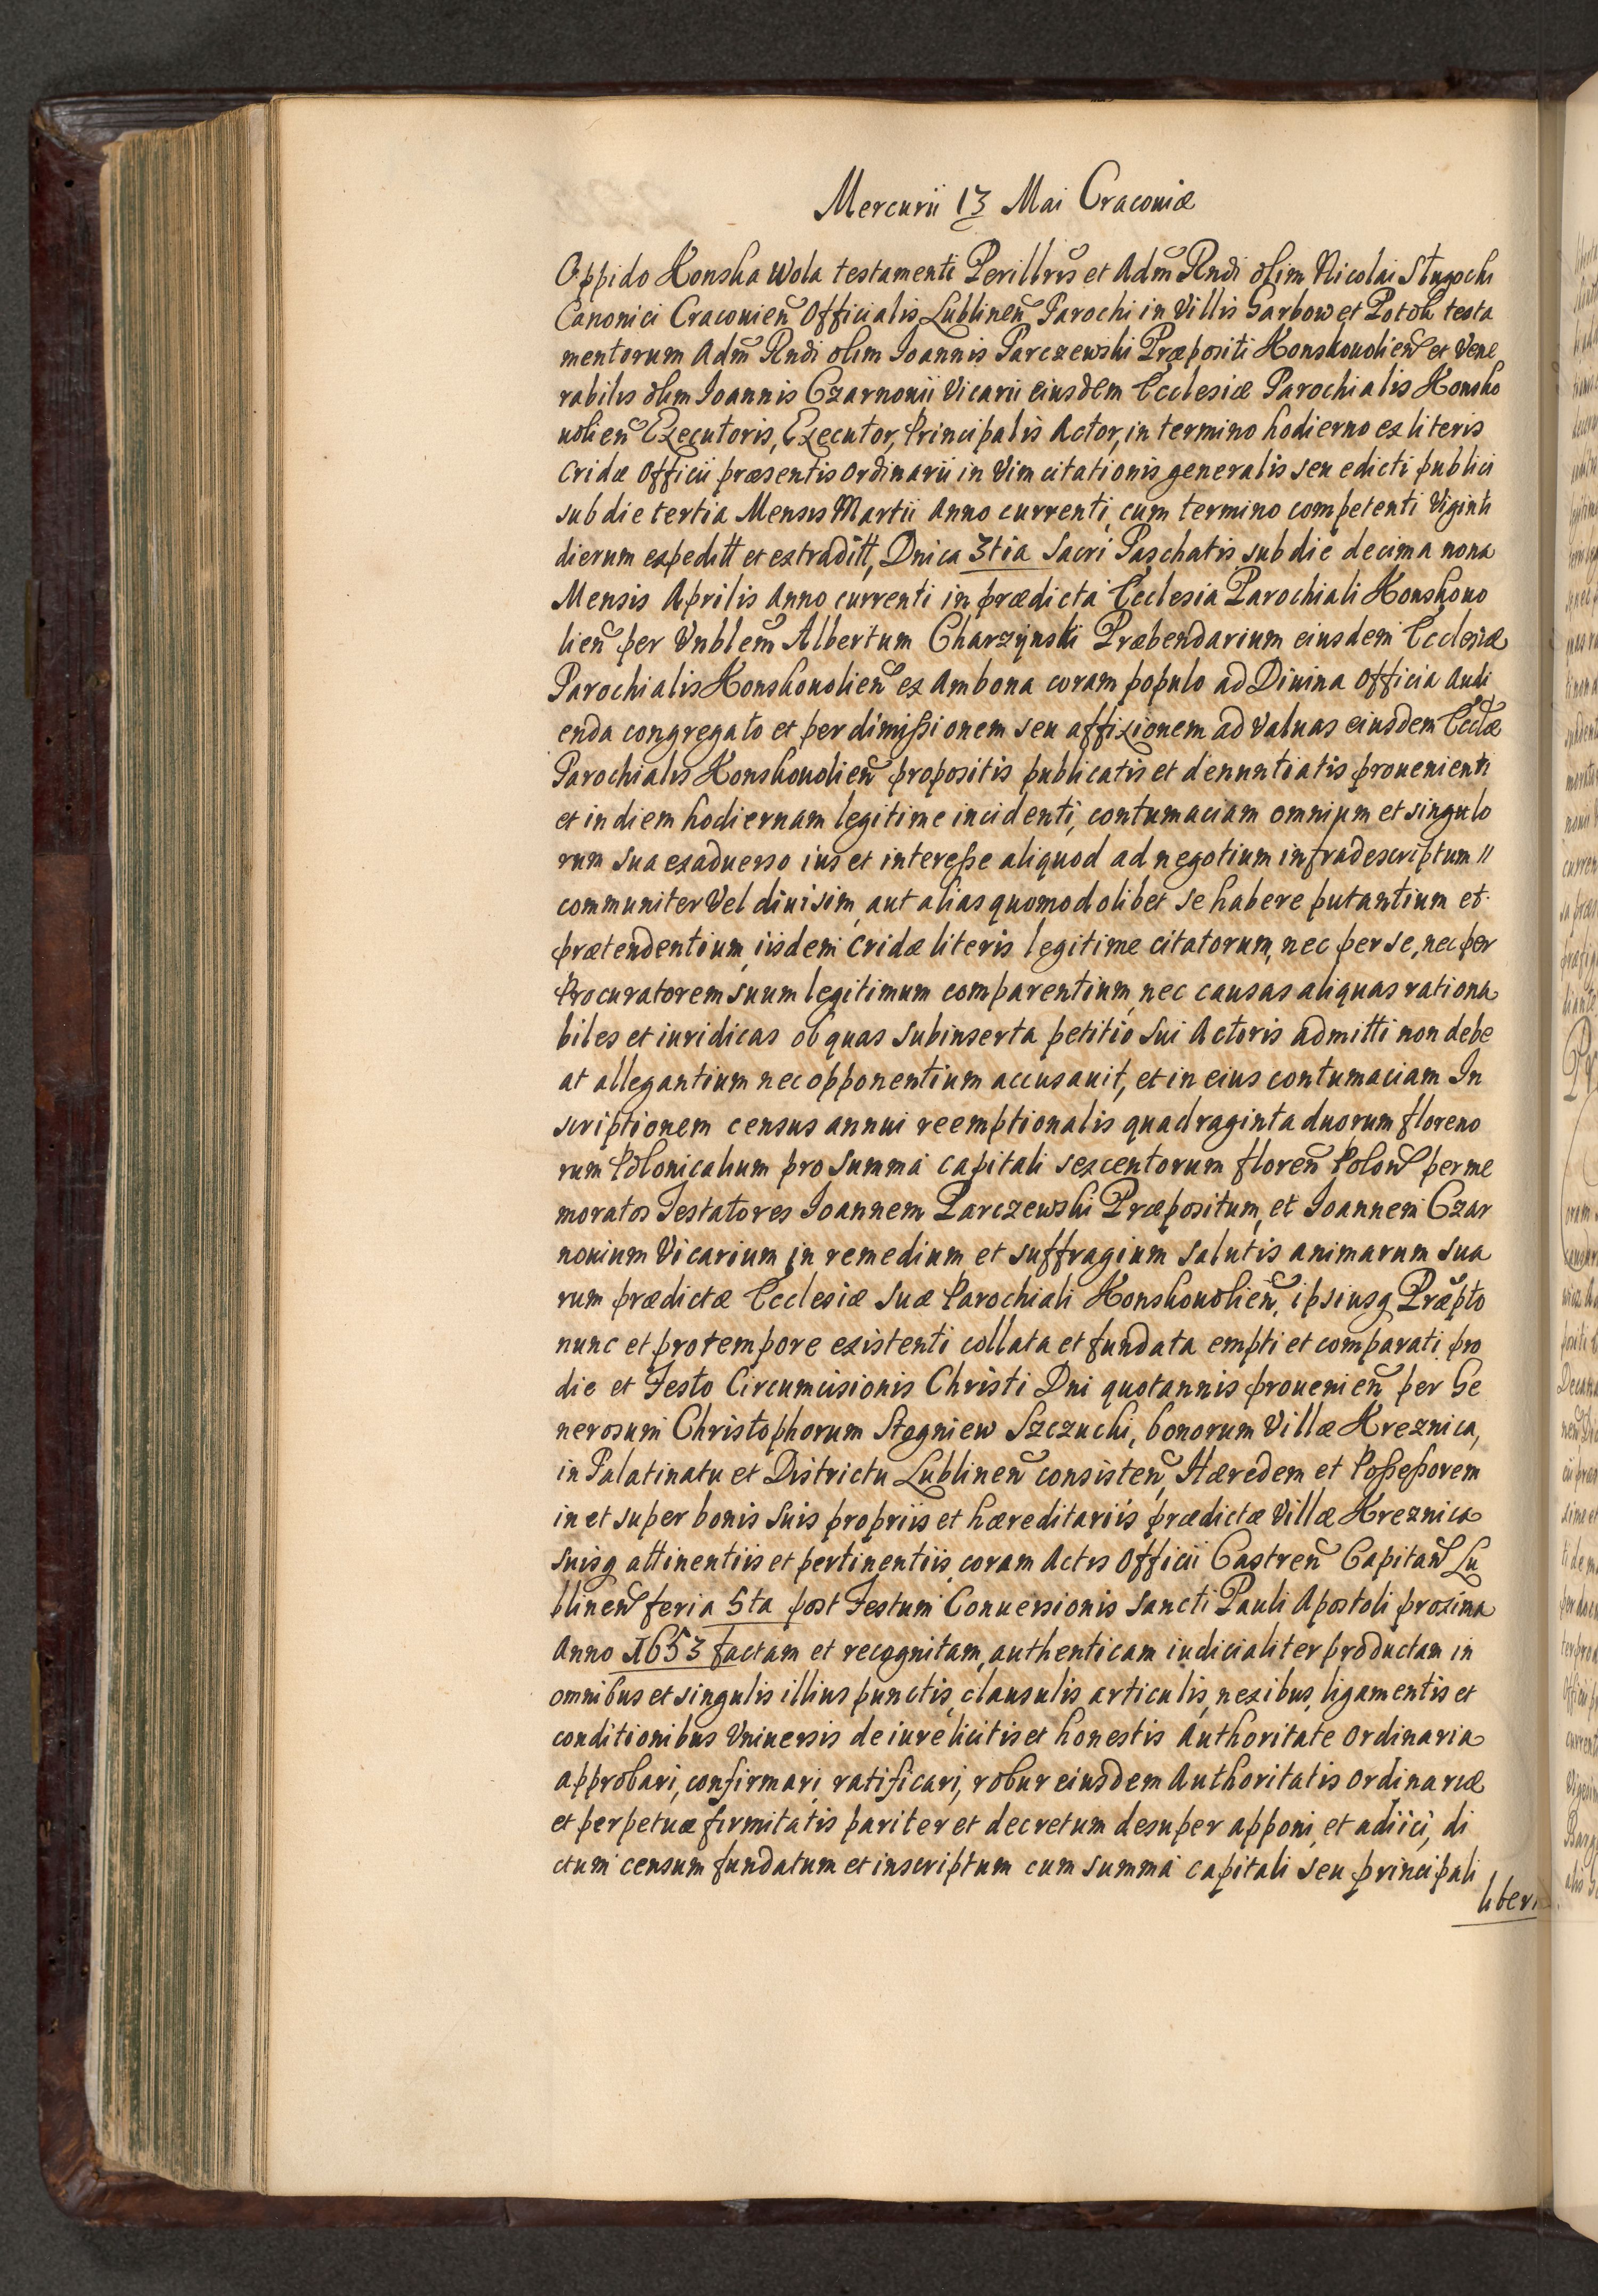 Mercurii 13 Mai Cracoviæ
Oppido Konska Wola testamenti Perillris et Adm Rndi olim Nicolai Slugocki
Canonici Cracouien Officialis Lublinen Parochi in Villis Garbow et Potok testa
mentorum Adm Rndi olim Joannis Parczewski Præpositi Konskouolien et Vene
rabilis olim Joannis Czarnouii Vicarii eiusdem Ecclesiæ Parochialis Konsko
uolien Executoris, Executor, Principalis Actor, in termino hodierno ex literis
Cridæ Officii præsentis Ordinarii in Vim citationis generalis seu edicti publici
sub die tertia Mensis Martii Anno currenti, cum termino competenti Viginti
dierum expeditt et extraditt, Dnica 3tia Sacri Paschatis sub die decima nona
Mensis Aprilis Anno currenti in prædicta Ecclesia Parochiali Konskouo
lien per Vnblem Albertum Charzynski Præbendarium eiusdem Ecclesiæ
Parochialis Konskouolien ex Ambona coram populo ad Diuina Officia Audi
enda congregato et per dimissionem seu affixionem ad Valuas eiusdem Ecclæ
Parochialis Konskouolien propositis publicatis et denuntiatis prouenienti
et in diem hodiernam legitime incidenti, contumaciam omnium et singulo
rum sua exaduerso ius et interesse aliquod ad negotium infradescriptum //
communiter Vel diuisim, aut alias quomodolibet se habere putantium et
prætendentium, iisdem Cridæ literis legitime citatorum, nec per se, nec per
Procuratorem suum legitimum comparentium, nec causas aliquas rationa
biles et iuridicas ob quas subinserta petitio sui Actoris admitti non debe
at allegantium nec opponentium accusauit, et in eius contumaciam In
scriptionem census annui reemptionalis quadraginta duorum floreno
rum Polonicalium pro summa capitali sexcentorum floren Polon per me
moratos Testatores Joannem Parczewski Præpositum, et Joannem Czar
nouium Vicarium in remedium et suffragium salutis animarum sua
rum prædictæ Ecclesiæ suæ Parochiali Konskouolien, ipsiusq Præpto
nunc et pro tempore existenti collata et fundata empti et comparati pro
die et Festo Circumcisionis Christi Dni quotannis prouenien per Ge
nerosum Christophorum Stogniew Szczucki, bonorum Villæ Kreznica,
in Palatinatu et Districtu Lublinen consisten, Hæredem et Possessorem
in et super bonis suis propriis et hæreditariis prædictæ Villæ Kreznica
suisq attinentiis et pertinentiis, coram Actis Officii Castren Capitan Lu
blinen feria 5ta post Festum Conuersionis Sancti Pauli Apostoli proxima
Anno 1653 factam et recognitam, authenticam iudicialiter productam in
omnibus et singulis illius punctis, clausulis articulis, nexibus, ligamentis et
conditionibus Vniuersis de iure licitis et honestis Authoritate Ordinaria
approbari, confirmari, ratificari, robur eiusdem Authoritatis Ordinariæ
et perpetuæ firmitatis pariter et decretum desuper apponi, et adiici, di
ctum censum fundatum et inscriptum cum summa capitali seu principali